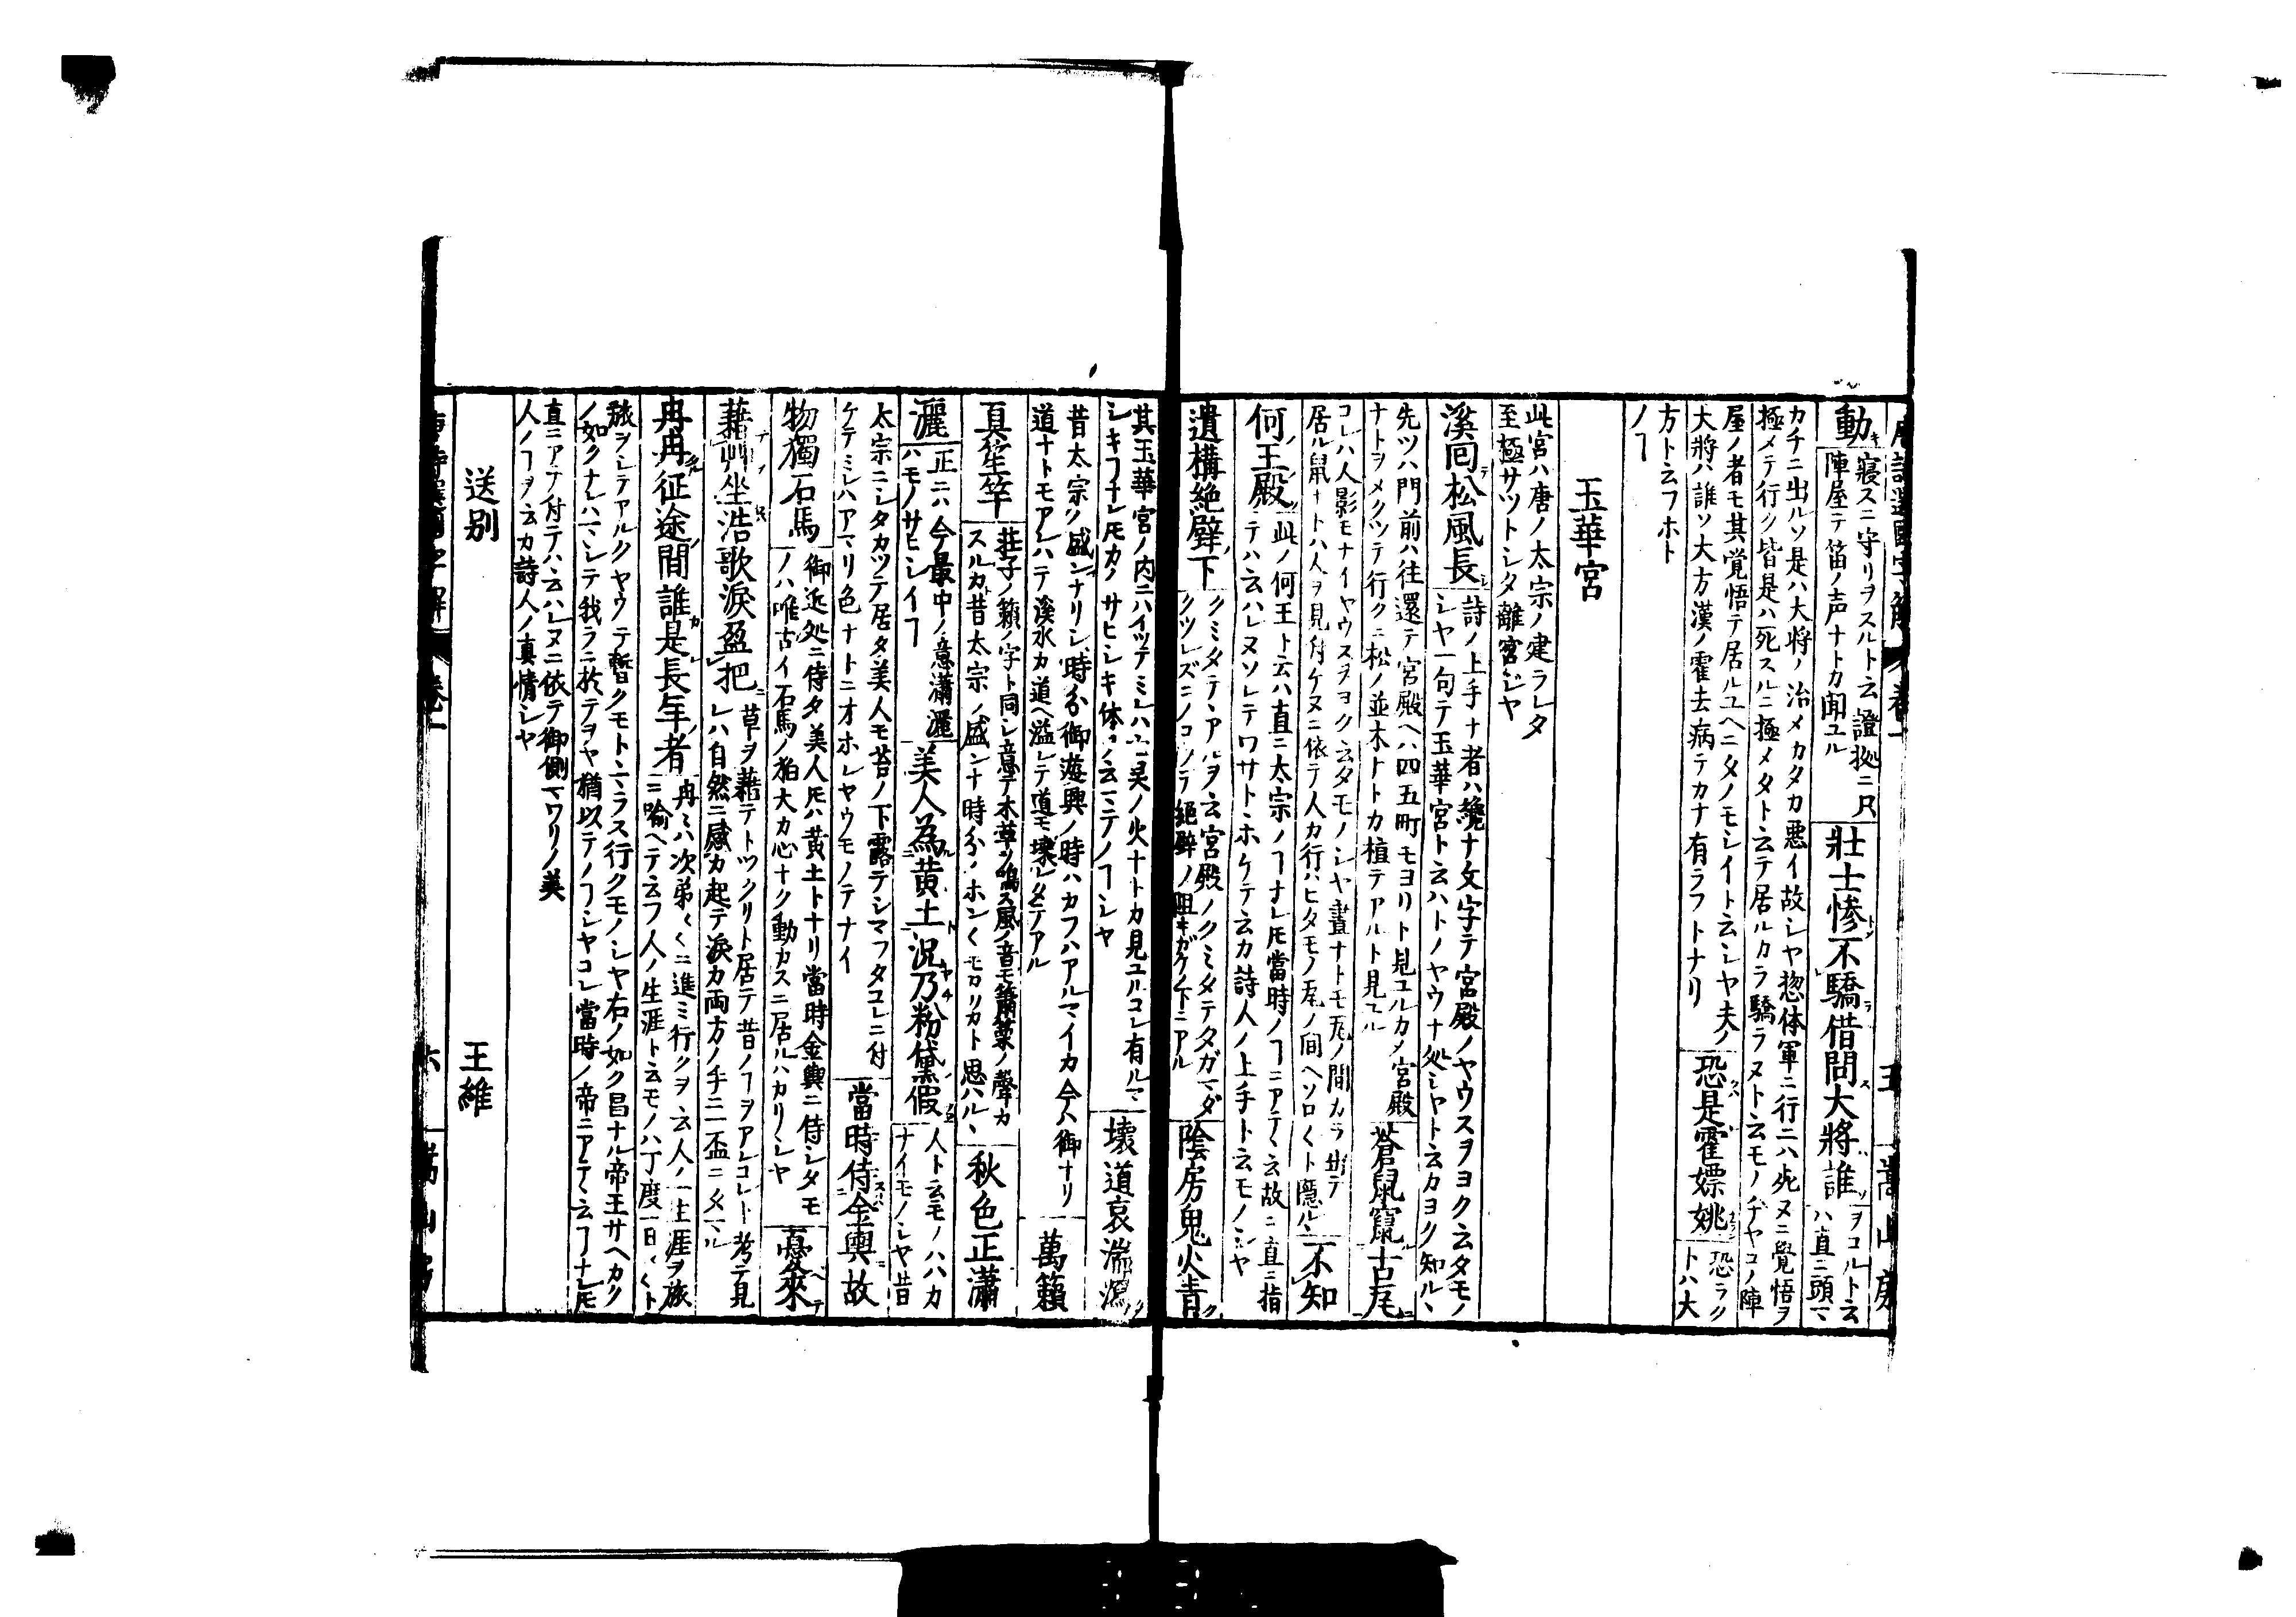 唐詩選國字解 卷一 五 嵩山房
動
寢スニ守リヲスルト云證拠ニ只
陣屋テ笛ノ声ナトカ聞ユル
壯士慘不驕借問大將誰
ヲコルト云
ハ直ニ頭マ
カチニ出ルソ是ハ大将ノ治メカタカ悪イ故シヤ惣体軍ニ行ニハ死ヌニ覺悟ヲ
極メテ行ク皆是ハ死スルニ極メタト云テ居ルカラ驕ラヌト云モノチヤコノ陣
屋ノ者モ其覚悟テ居ルユヘニタノモシイト云シヤ夫ノ
大將ハ誰ソ大方漢ノ霍去病テカナ有ラフトナリ
恐是霍嫖姚
恐ラク
トハ大
方ト云フホト
ノヿ
玉華宮
此宮ハ唐ノ太宗ノ建ラレタ
至極サツトシタ離宮シヤ
溪囘松風長
詩ノ上手ナ者ハ纔ナ文字テ宮殿ノヤウスヲヨク云タモノ
シヤ一句テ玉華宮ト云ハトノヤウナ処シヤト云カヨク知ルヽ
先ツハ門前ハ往還テ宮殿ヘハ四五町モヨリト見ユルカノ宮殿
ナトヲメクツテ行クニ松ノ並木ナトカ植テアルト見ユル
蒼鼠竄古瓦
コレハ人影モナイヤウスヲヨク云タモノシヤ晝ナトモ瓦ノ間カラ出テ
居ル鼠ナトハ人ヲ見付ケヌニ依テ人カ行ハヒタモノ瓦ノ間ヘソロ〱ト隠ルヽ
不知
何王殿
此ノ何王ト云ハ直ニ太宗ノヿナレ𪜈當時ノヿニアテヽ云故ニ直ニ指
テハ云ハレヌソレテワサトホケテ云カ詩人ノ上手ト云モノシヤ
遺構絶壁下
クミタテヽアルヲ云宮殿ノクミタテタガマダ
クツレズニノコツテ絶壁ノ阻キガケノ下ニアル
陰房鬼火青
其玉華宮ノ内ニハイツテミレハ
シキヿナレ𪜈カノサヒシキ体ヲ云
昊ノ火ナトカ見ユルコレ有ルマ
テノヿシヤ
壞道哀湍瀉
昔太宗ノ盛ンナリシ時分御遊興ノ時ハカフハアルマイカ今ハ御ナリ
道ナトモアレハテ溪水カ道ヘ溢レテ道モ壊レタテアル
萬籟
眞笙竽
莊子ノ籟ノ字ト同シ意テ木草ノ鳴ス風ノ音モ簫篥ノ聲カ
スルカト昔太宗ノ盛ンナ時分ノホン〱モカリカト思ハルヽ
秋色正瀟
灑
正ニハ今最中ノ意瀟灑
ハモノサヒシイヿ
美人為黄土況乃粉黛假
人ト云モノハカ
ナイモノシヤ昔
太宗ニシタカツテ居タ美人モ苔ノ下露テシマフタコレニ付
ケテミレハアマリ色ナトニオホレヤウモノテナイ
當時侍金輿故
物獨石馬
御近処ニ侍タ美人𪜈ハ黄土トナリ當時金輿ニ侍シタモ
ノハ唯古イ石馬ノ狛犬カ心ナク動カスニ居ルハカリシヤ
憂來
藉艸坐浩歌淚盈把
草ヲ藉テトツクリト居テ昔ノヿヲアレコレト考テ見
レハ自然ニ感カ起テ淚カ両方ノ手ニ一盃ニタマル
冉冉征途間誰是長年者
冉ミハ次第〱ニ進ミ行クヲ云人ノ一生涯ヲ旅
ニ喩ヘテ云フ人ノ生涯ト云モノハ丁度一日〱ト
旅ヲシテアルクヤウテ暫クモトヽマラス行クモノシヤ右ノ如ク昌ナル帝王サヘカク
ノ如クナレハマシテ我ラニ於テヲヤ猶以テノヿシヤコレ當時ノ帝ニアテヽ云ヿナレ𪜈
直ニアテ付テハ云ハレヌニ依テ御側マワリノ美
人ノヿヲ云カ詩人ノ真情シヤ
送別 王維
唐詩選國字解 卷一 六 嵩山房